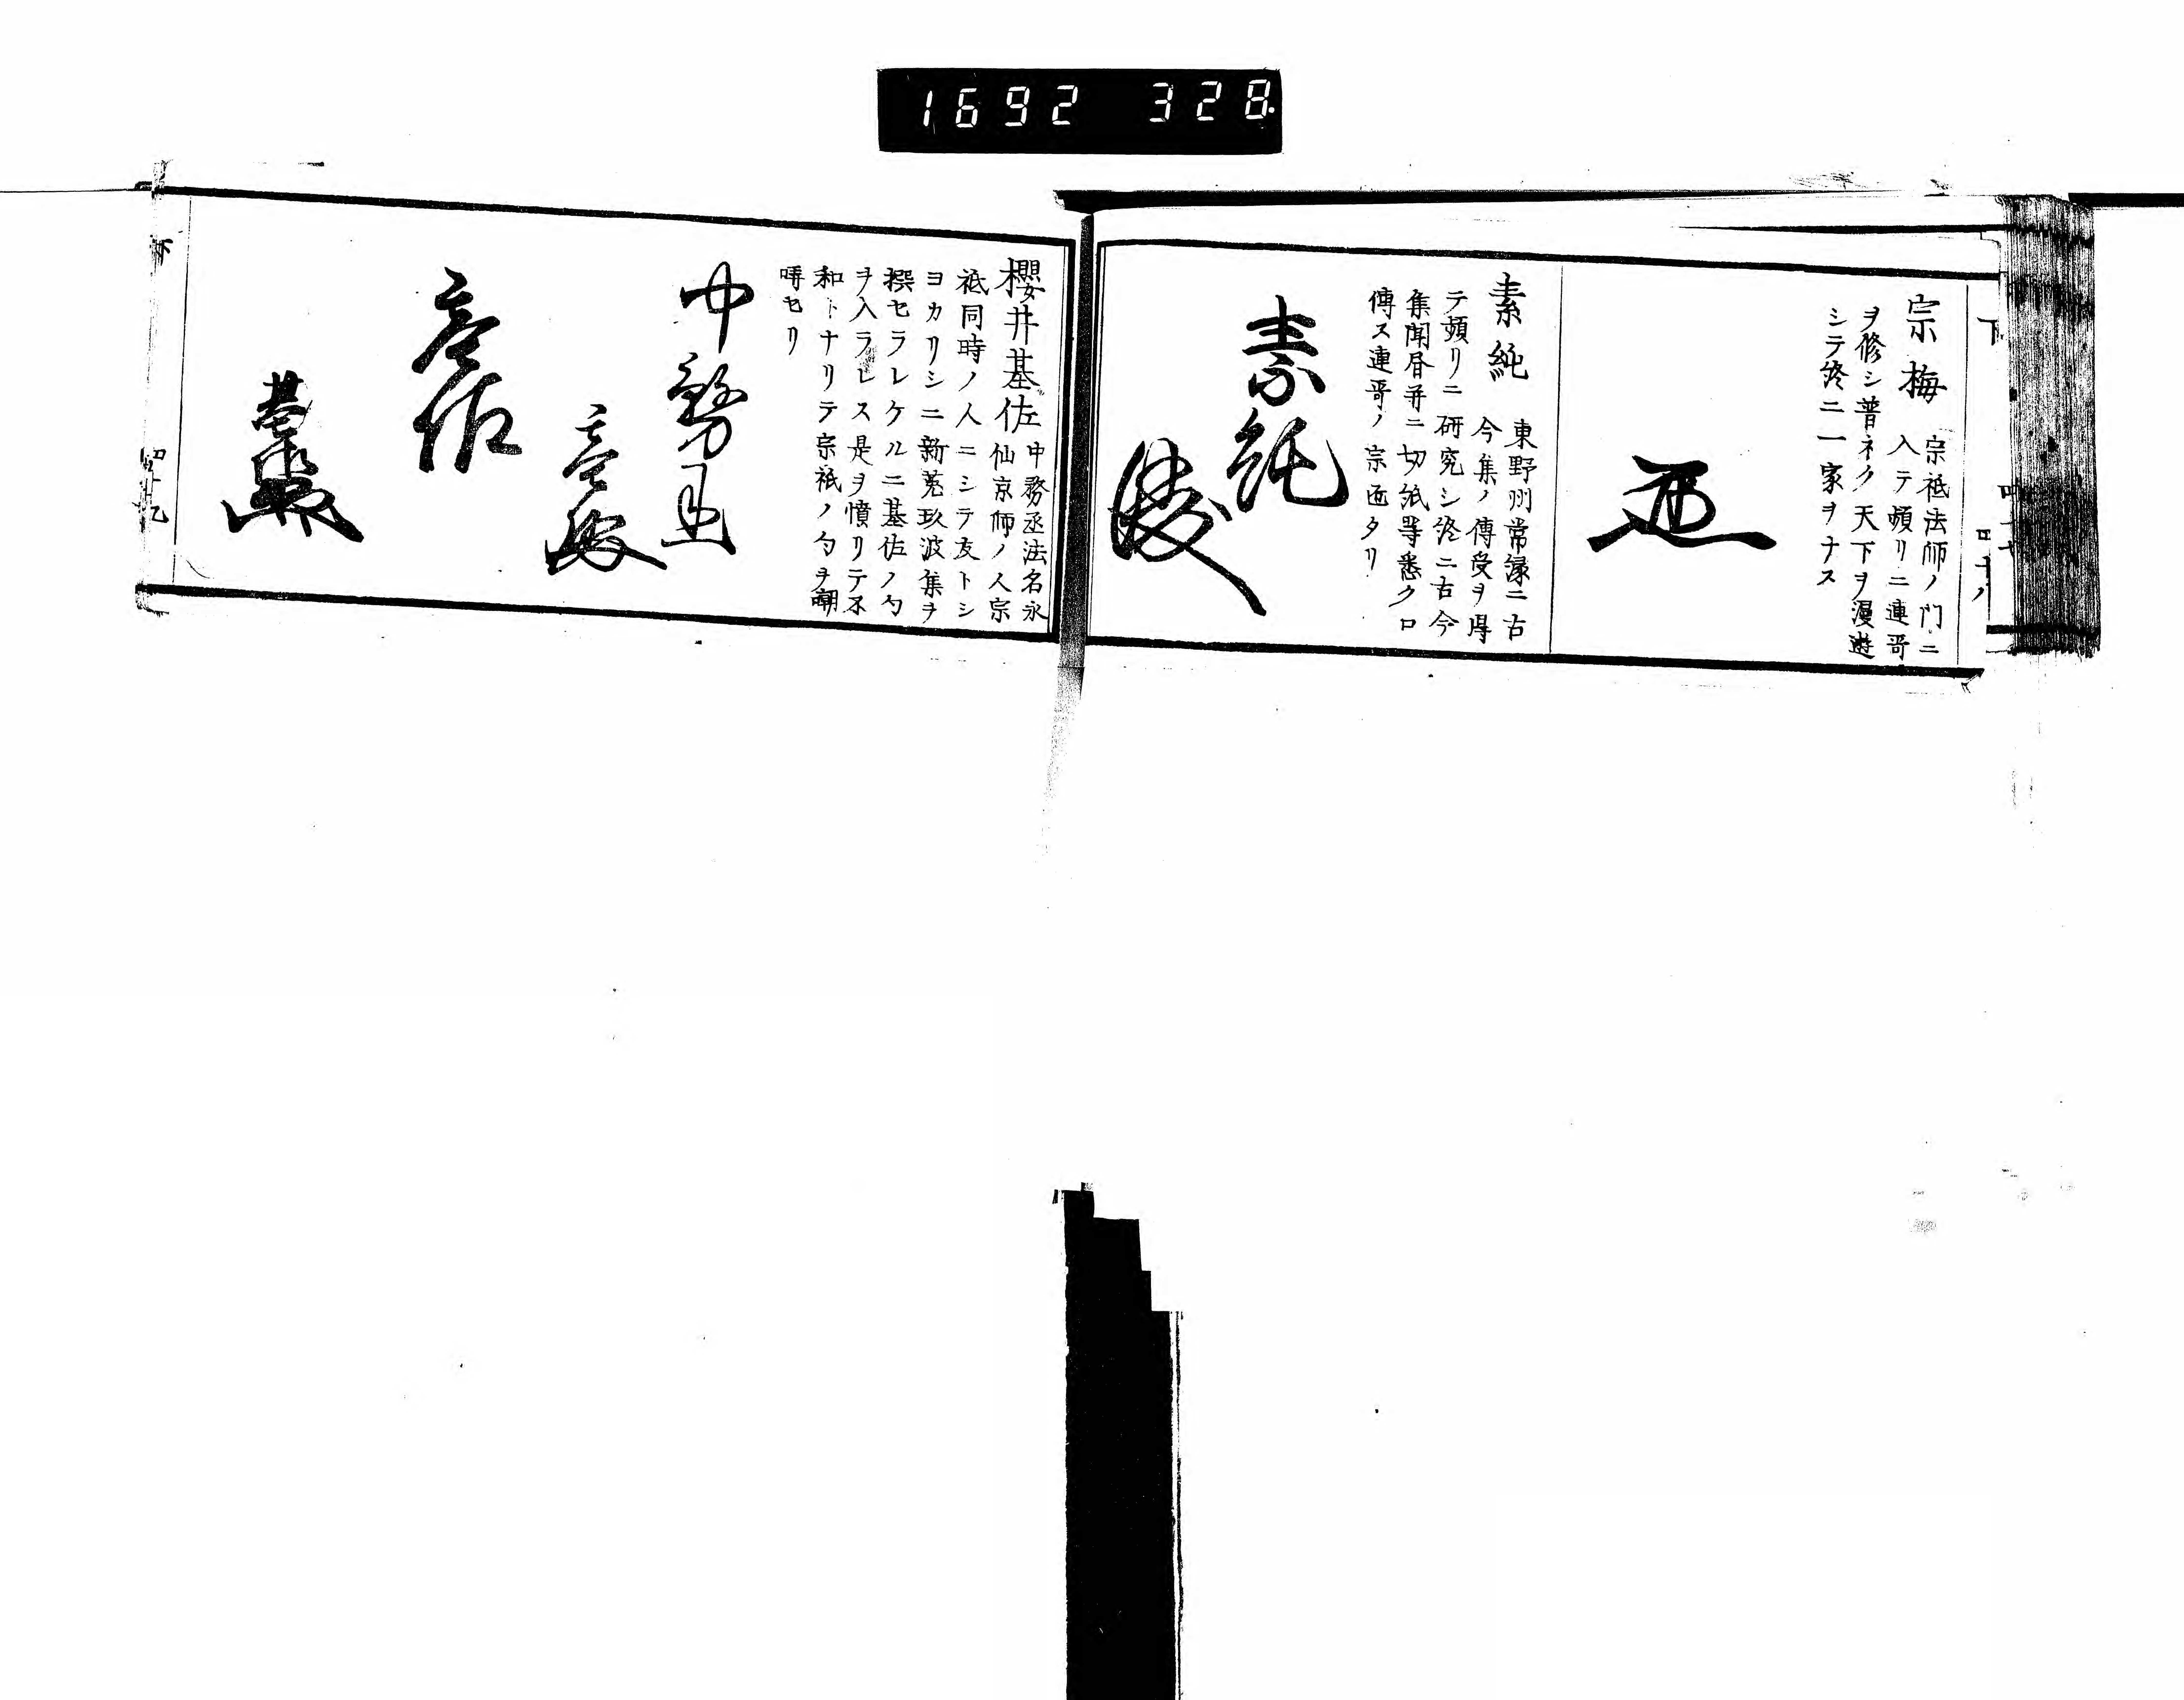 1692 328
下
宗梅 宗祗法師ノ門ニ
入テ頻リニ連哥
ヲ修シ普ネク天下ヲ漫遊
シテ終ニ一家ヲナス
素純 東野州常縁ニ古
今集ノ傳受ヲ得
テ頻リニ研究シ終ニ古今
集聞昏并ニ切紙等悉クロ
傳ス連哥ノ宗匠タリ
素純
櫻井基佐 中務丞法名永
仙京師ノ人宗
祗同時ノ人ニシテ友トシ
ヨカリシニ新莬玖波集ヲ
撰セラレケルニ基佐ノ句
ヲ入ラレス是ヲ憤リテ不
和トナリテ宗祗ノ句ヲ嘲
哢セリ
中務丞
基佐
四十九